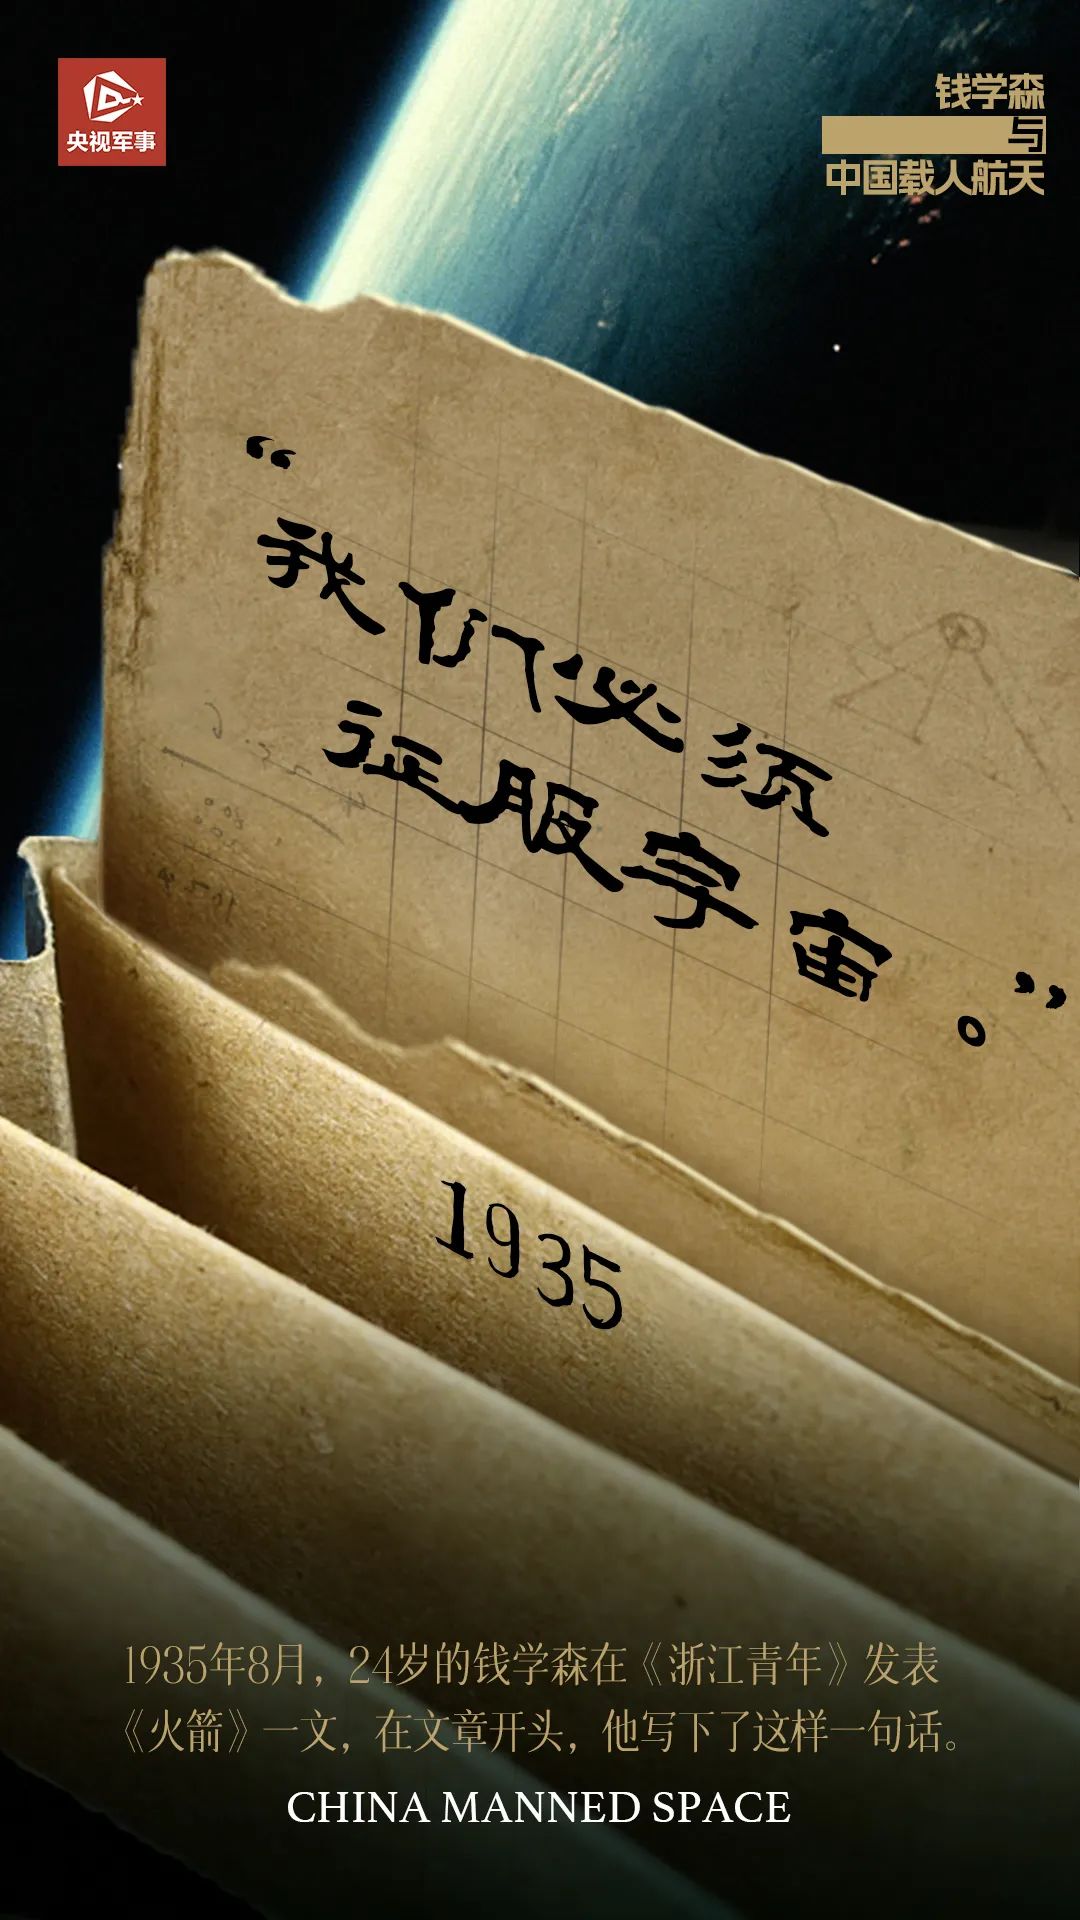 央视军事
钱学森
与
中国载人航天
“
我们必须
征服宇宙。”
1935
1935年8月，24岁的钱学森在《浙江青年》发表
《火箭》一文，在文章开头，他写下了这样一句话。
CHINA MANNED SPACE